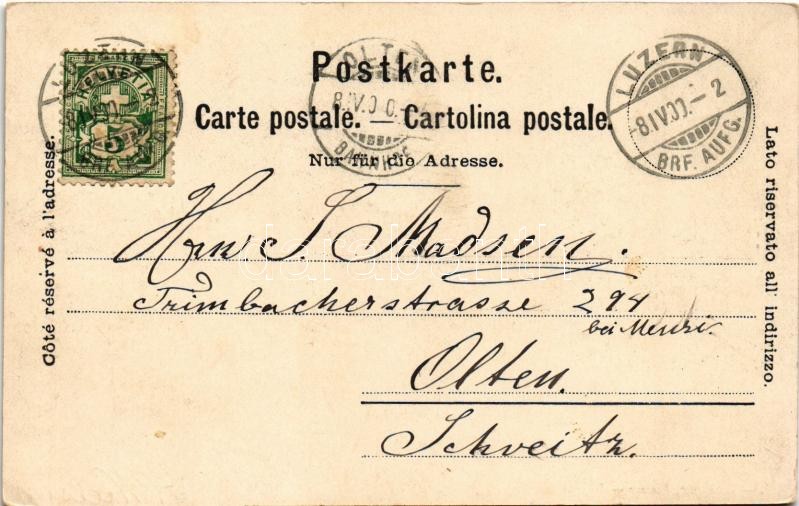 Postkarte.
Carte postale. — Cartolina postale.
Nur für die Adresse.
Côté réservé à l'adresse.
Lato riservato all' indirizzo.
HELVETIA
5
LUZERN
OLTEN
8.IV.00.
LUZERN
-8.IV.00.- 2
BRF. AUFG.
Herrn S. Madsen.
Trimbacherstrasse 294
bei
Olten.
Schveitz.